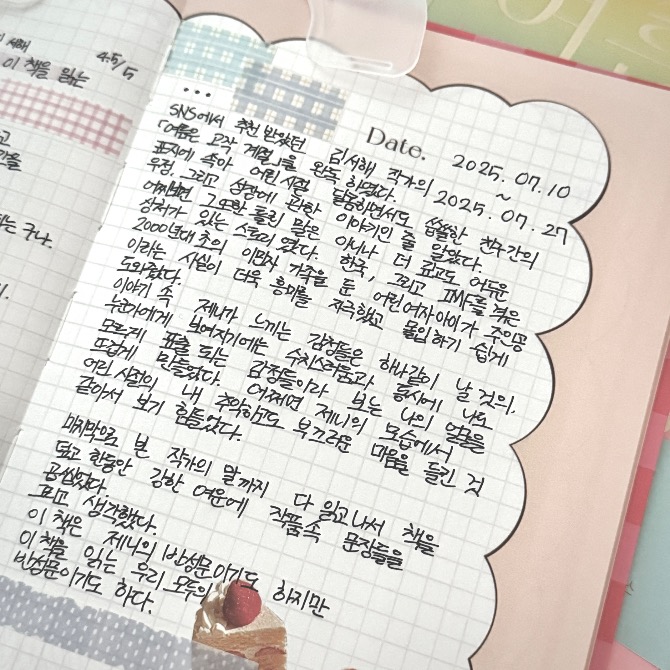 4.5/5
이 책을 읽는
Date.
2025. 07. 10
~
2025. 07. 27
SNS에서 추천 받았던 김서해 작가의
「여름은 고작 계절」을 완독 하였다.
표지에 속아 어린 시절 달콤하면서도 씁쓸한 친구간의
우정, 그리고 성장에 관한 이야기인 줄 알았다.
어찌보면 그 또한 틀린 말은 아니나 더 깊고도 어두운
상처가 있는 스토리 였다. 한국, 그리고 IMF를 겪은
2000년대 초의 이민자 가족을 둔 어린 여자아이가 주인공
이라는 사실이 더욱 흥미를 자극했고 몰입하기 쉽게
도와줬다.
이야기 속 제니가 느끼는 감정들은 하나같이 날 것의,
누군가에게 보여지기에는 수치스러움과 동시에 나도
모르게 표출 되는 감정들이라 보는 나의 얼굴을
뜨겁게 만들었다. 어쩌면 제니의 모습에서
어린 시절의 내 추악하고도 부끄러운 마음을 들킨 것
같아서 보기 힘들었다.
마지막으로 본 작가의 말까지 다 읽고 나서 책을
덮고 한동안 강한 여운에 작품 속 문장들을
곱씹었다.
그리고 생각했다.
이 책은 제니의 반성문이기도 하지만
이 책을 읽는 우리 모두의
반성문이기도 하다.